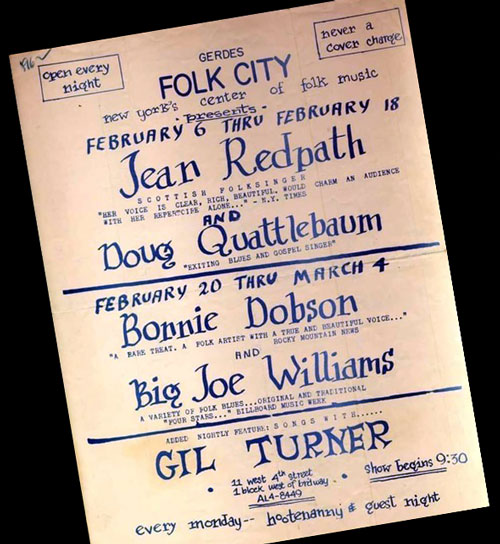 open every
night
never a
cover charge
GERDES
FOLK CITY
new york's center of folk music
- presents -
FEBRUARY 6 THRU FEBRUARY 18
Jean Redpath
SCOTTISH FOLKSINGER
"HER VOICE IS CLEAR, RICH, BEAUTIFUL. WOULD CHARM AN AUDIENCE
WITH HER REPERTOIRE ALONE..." - N.Y. TIMES
AND
Doug Quattlebaum
"EXITING BLUES AND GOSPEL SINGER"
FEBRUARY 20 THRU MARCH 4
Bonnie Dobson
"A RARE TREAT. A FOLK ARTIST WITH A TRUE AND BEAUTIFUL VOICE..."
ROCKY MOUNTAIN NEWS
AND
Big Joe Williams
A VARIETY OF FOLK BLUES...ORIGINAL AND TRADITIONAL
"FOUR STARS..." BILLBOARD MUSIC WEEK
ADDED NIGHTLY FEATURE: SONGS WITH......
GIL TURNER
11 west 4th street
1 block west of brdway
AL4-8449
show begins 9:30
every monday-- hootenanny & guest night